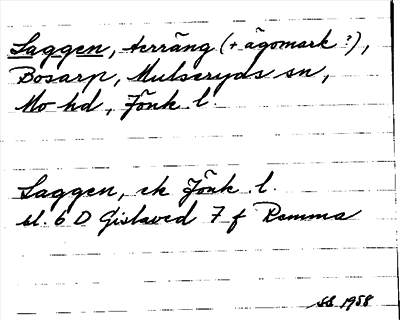 Saggen, terräng (+ ägomark?),
Bosarp, Mulseryds sn,
Mo hd, Jönk. l.
Saggen, ek Jönk. l.
bl. 6 D Gislaved 7 f Remma
SB 1958